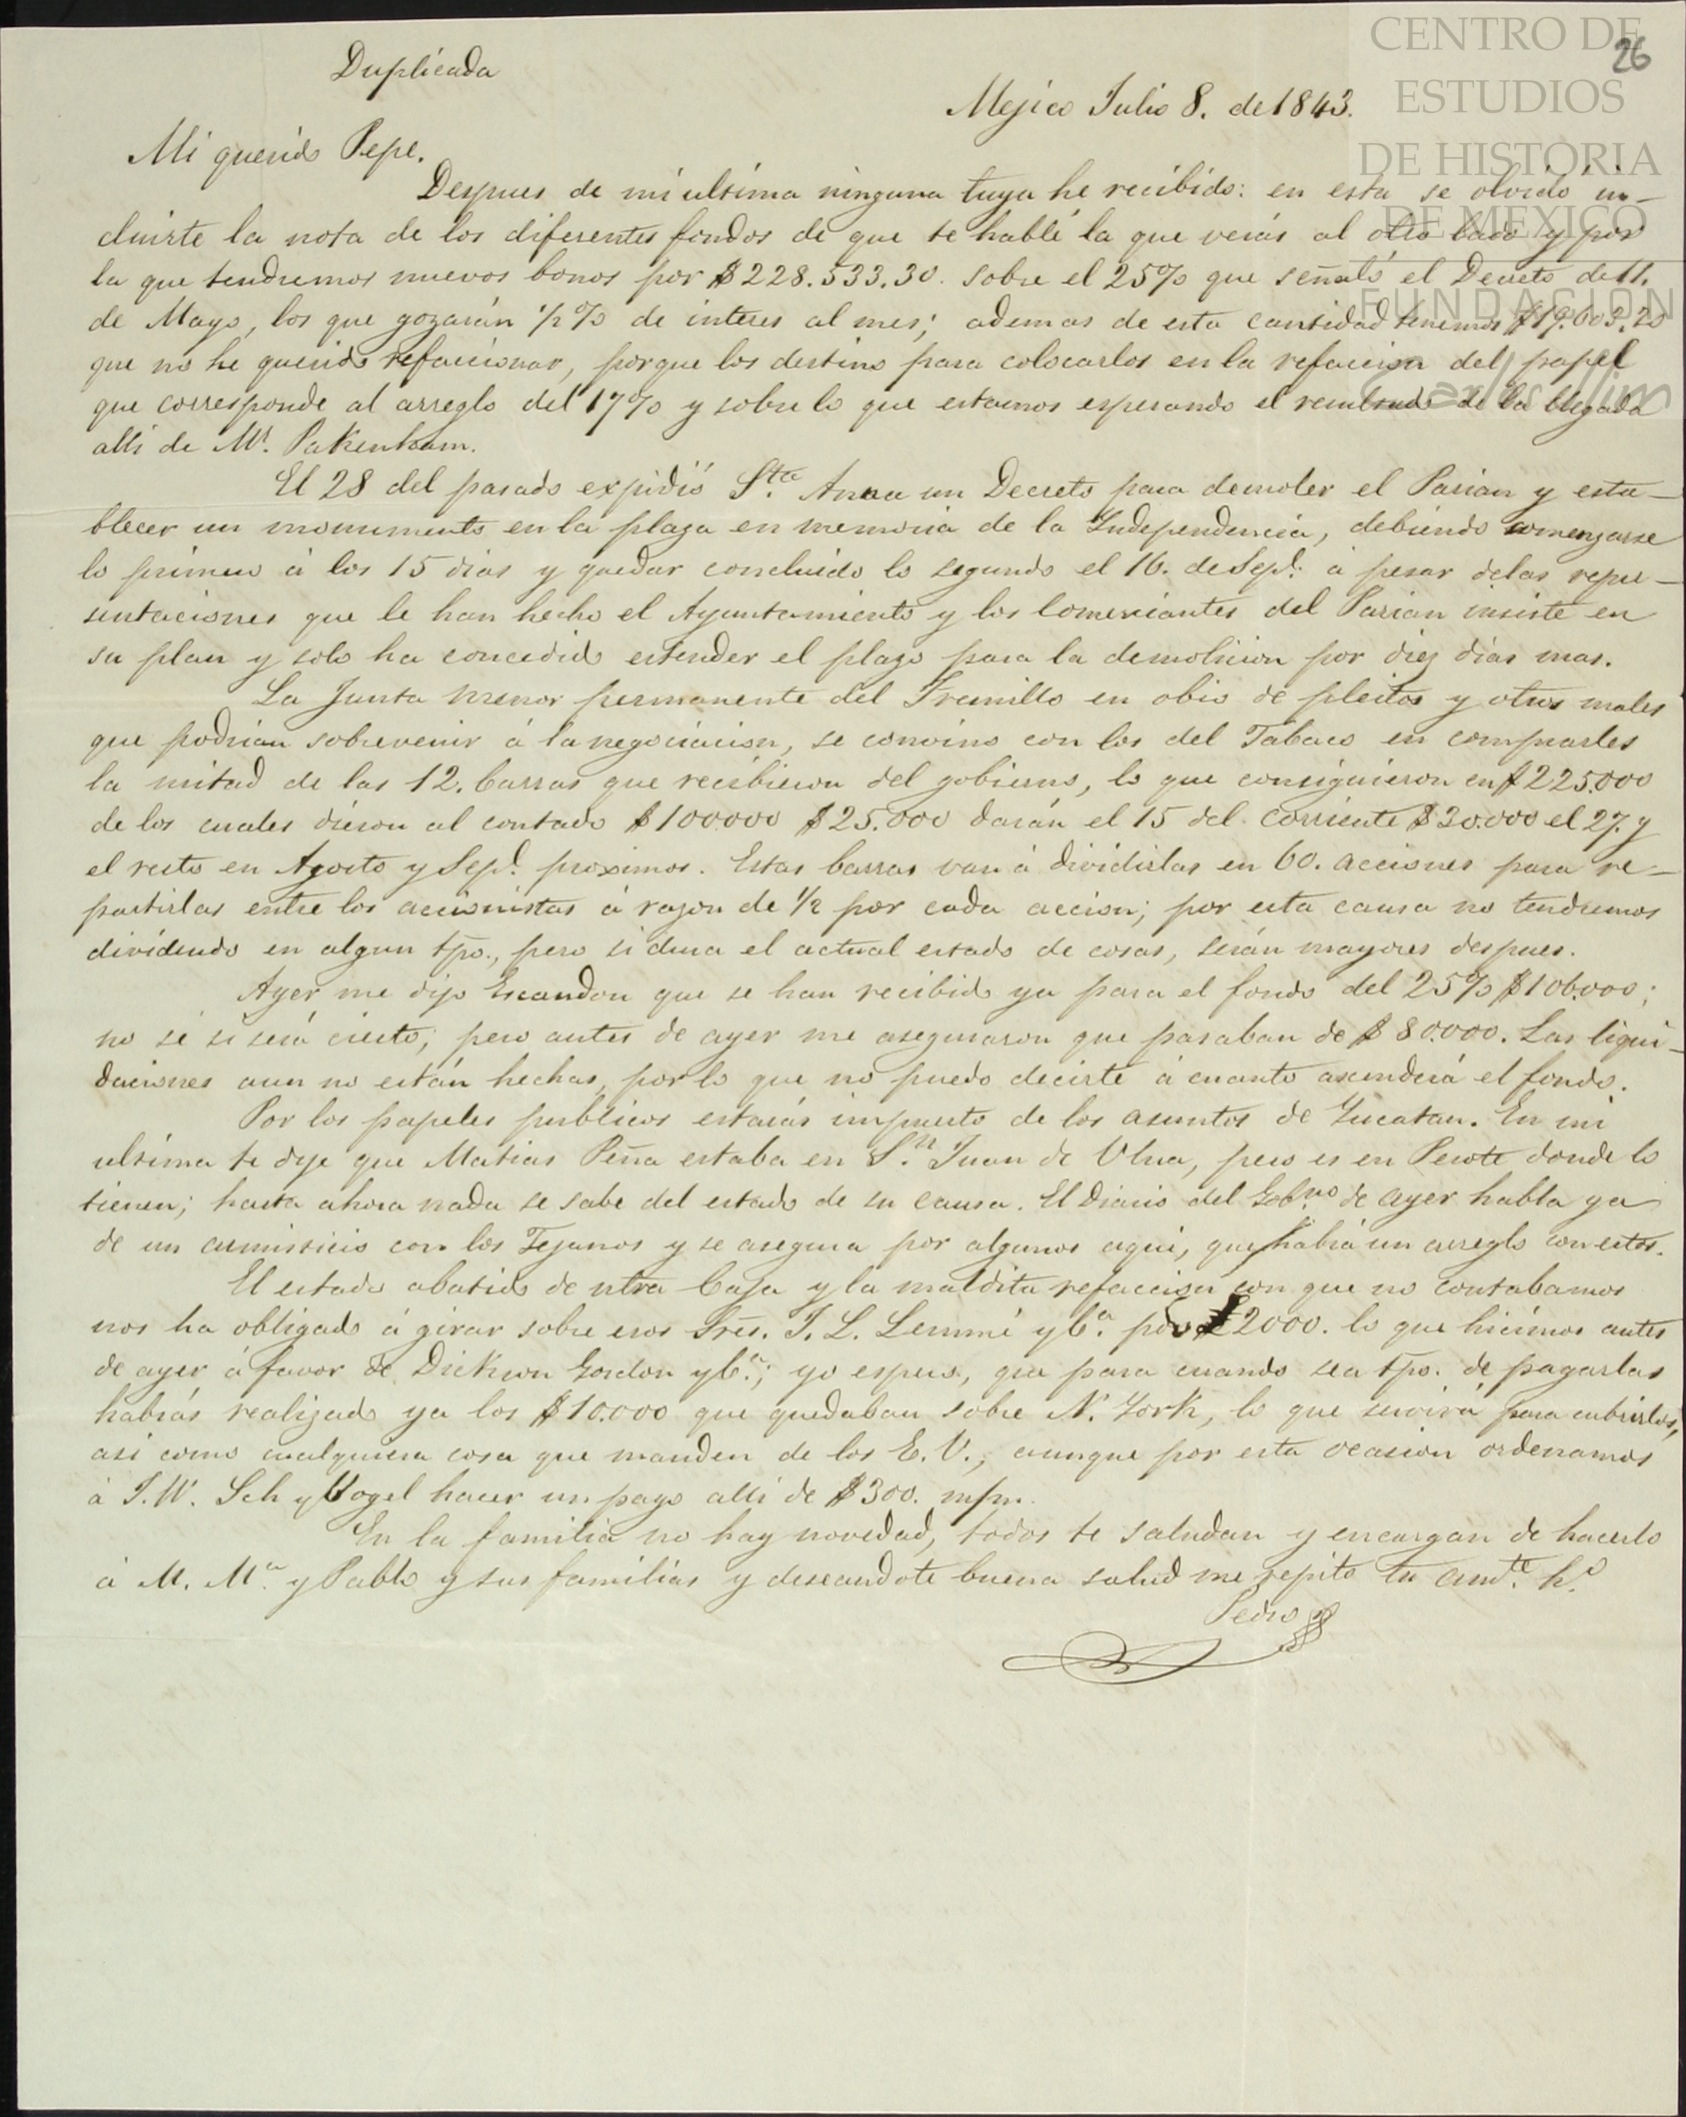 CENTRO DE
ESTUDIOS
DE HISTORIA
DE MEXICO
FUNDACION
Carlos Slim
26
Duplicada
Mejico Julio 8. de 1843.
Mi querido Pepe.
Despues de mi ultima ninguna tuya he recibido: en esta se olvidó in-
cluirte la nota de los diferentes fondos de que te hablé la que verás al otro lado y por
la que tendremos nuevos bonos por $228.533.30. sobre el 25% que señaló el Decreto de 11.
de Mayo, los que gozarán ½% de interes al mes; ademas de esta cantidad tenemos $19.603.20
que no he querido refaccionar, porque los destino para colocarlos en la refaccion del papel
que corresponde al arreglo del 17% y sobre lo que estamos esperando el resultado de la llegada
alli de Mr. Pakenham.
El 28 del pasado expidió Sta. Anna un Decreto para demoler el Parian y esta-
blecer un monumento en la plaza en memoria de la Independencia, debiendo comenzarse
lo primero á los 15 dias y quedar concluido lo segundo el 16. de Sepe. á pesar delas repre-
sentaciones que le han hecho el Ayuntamiento y los Comerciantes del Parian insiste en
su plan y solo ha concedido estender el plazo para la demolicion por diez dias mas.
La Junta menor permanente del Fresnillo en obio de pleitos y otros males
que podrian sobrevenir á la negociacion, se convino con los del Tabaco en comprarles
la mitad de las 12. barras que recibieron del gobierno, lo que consiguieron en $225.000
de los cuales dieron al contado $100.000 $25.000 darán el 15 del corriente $30.000 el 27. y
el resto en Agosto y Sepe. proximos. Estas barras van á dividirlas en 60. acciones para re-
partirlas entre los accionistas á razon de ½ por cada accion; por esta causa no tendremos
dividendo en algun tpo., pero si dura el actual estado de cosas, serán mayores despues.
Ayer me dijo Escandon que se han recibido ya para el fondo del 25% $106.000;
no sé si será cierto; pero antes de ayer me aseguraron que pasaban de $80.000. Las liqui-
daciones aun no están hechas, por lo que no puedo decirte á cuanto ascenderá el fondo.
Por los papeles publicos estarás impuesto de los asuntos de Yucatan. En mi
ultima te dije que Matias Peña estaba en Sn. Juan de Ulua, pero es en Perote donde lo
tienen; hasta ahora nada se sabe del estado de su causa. El Diario del Gobno. de ayer habla ya
de un armisticio con los Tejanos y se asegura por algunos aqui, que habrá un arreglo con estos.
El estado abatido de ntra Caja y la maldita refaccion con que no contabamos
nos ha obligado á girar sobre esos Sres. J. L. Lemmé y Ca. por £2000. lo que hicimos antes
de ayer á favor de Dickson Gordon y Ca.; yo espero, que para cuando sea tpo. de pagarlas
habrás realizado ya los $10.000 que quedaban sobre N. York, lo que servirá para cubrirlos,
asi como cualquiera cosa que manden de los E. U., aunque por esta ocasion ordenamos
á J. W. Sch y Vogel hacer un pago alli de $300. m/m.
En la familia no hay novedad, todos te saludan y encargan de hacerlo
á M. Ma. y Pablo y sus familias y deseandote buena salud me repito tu amte. ho.
Pedro